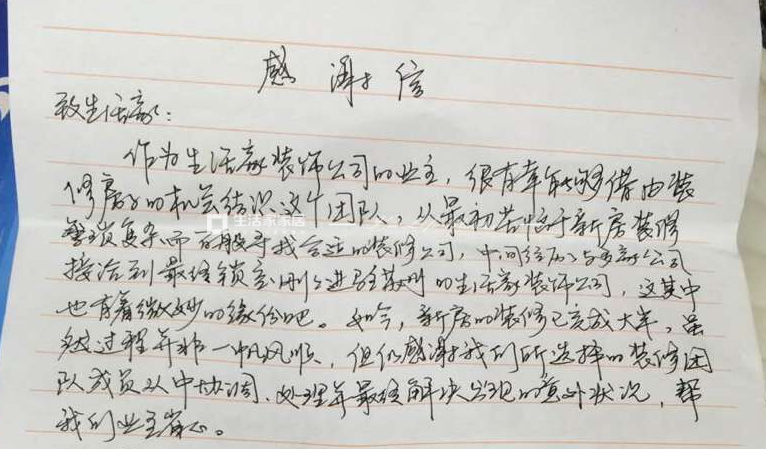 感谢信
致生活家:
作为生活家装饰公司的业主,很有幸能够借由装
修房子的机会结识这个团队,从最初苦恼于新房装修
繁琐复杂而百般寻找合适的装修公司,中间经历与多家公司
接洽到最终锁定刚刚进驻苏州的生活家装饰公司,这其中
也有着微妙的缘份吧。如今,新房的装修已完成大半,虽
然过程并非一帆风顺,但仍感谢我们所选择的装修团
队成员从中协调、处理并最终解决出现的意外状况,帮
我们业主省心。
生活家家居